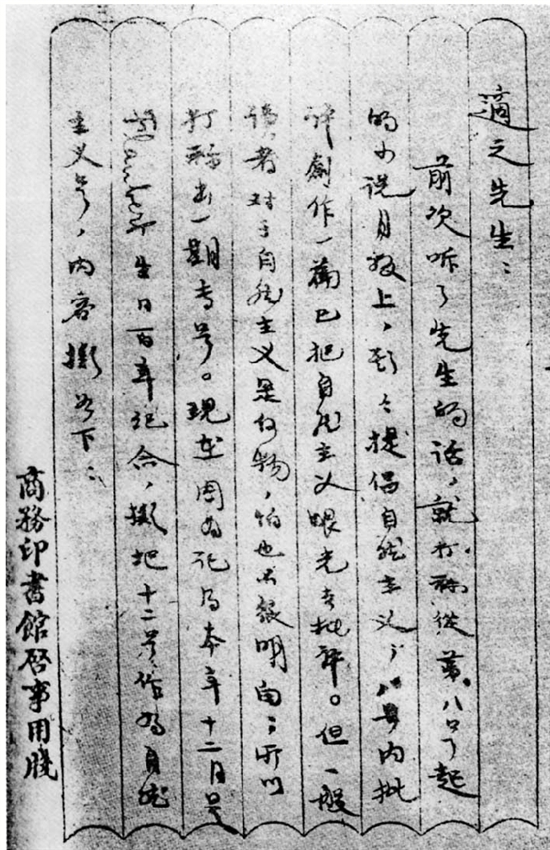 適之先生：
前次听了先生的话，就打称从第八号起
的小说月报上，提倡自然主义，八号内批
评創作一篇已把自然主义眼光去批评。但一般
读者对于自然主义是何物，怕也不很明白；所以
打称出一期专号。现在因为本年十二月号
生日百年纪念，拟把十二号作为自然
主义号，内容拟如下：
商務印書館啓事用牋